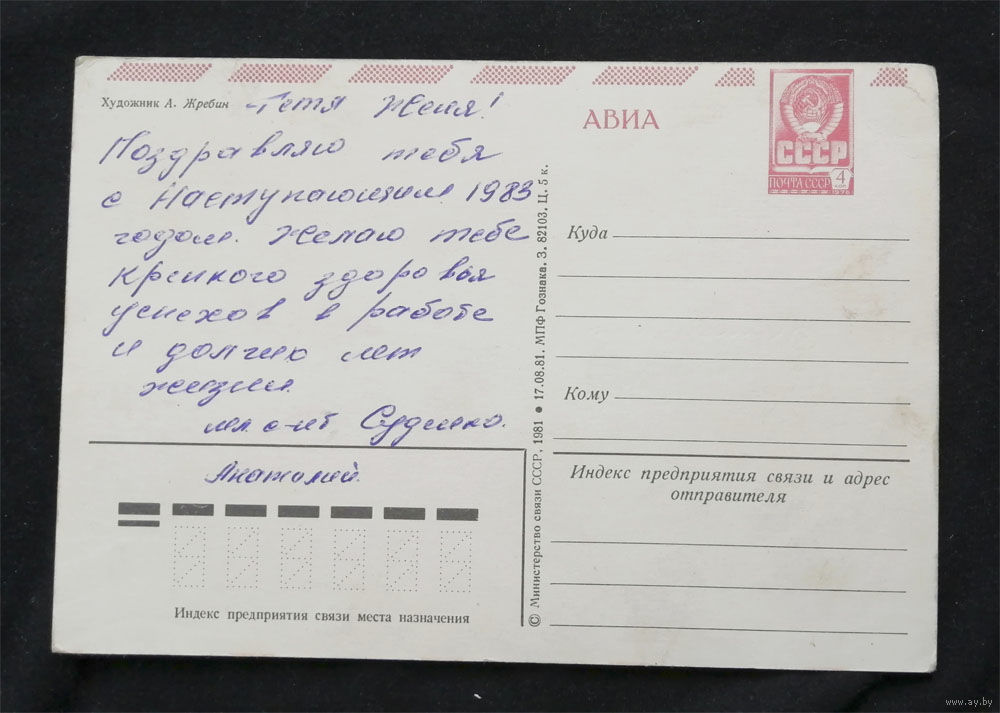 Художник А. Жребин
Тётя Женя!
Поздравляю тебя
с Наступающим 1983
годом. Желаю тебе
крепкого здоровья
успехов в работе
и долгих лет
жизни.
мл. с-нт
Анатолий.
Индекс предприятия связи места назначения
© Министерство связи СССР, 1981 ● 17.08.81. МПФ Гознака. З. 82103. Ц. 5 к.
АВИА
СССР
ПОЧТА СССР 4
КОП
Куда
Кому
Индекс предприятия связи и адрес
отправителя
www.ay.by